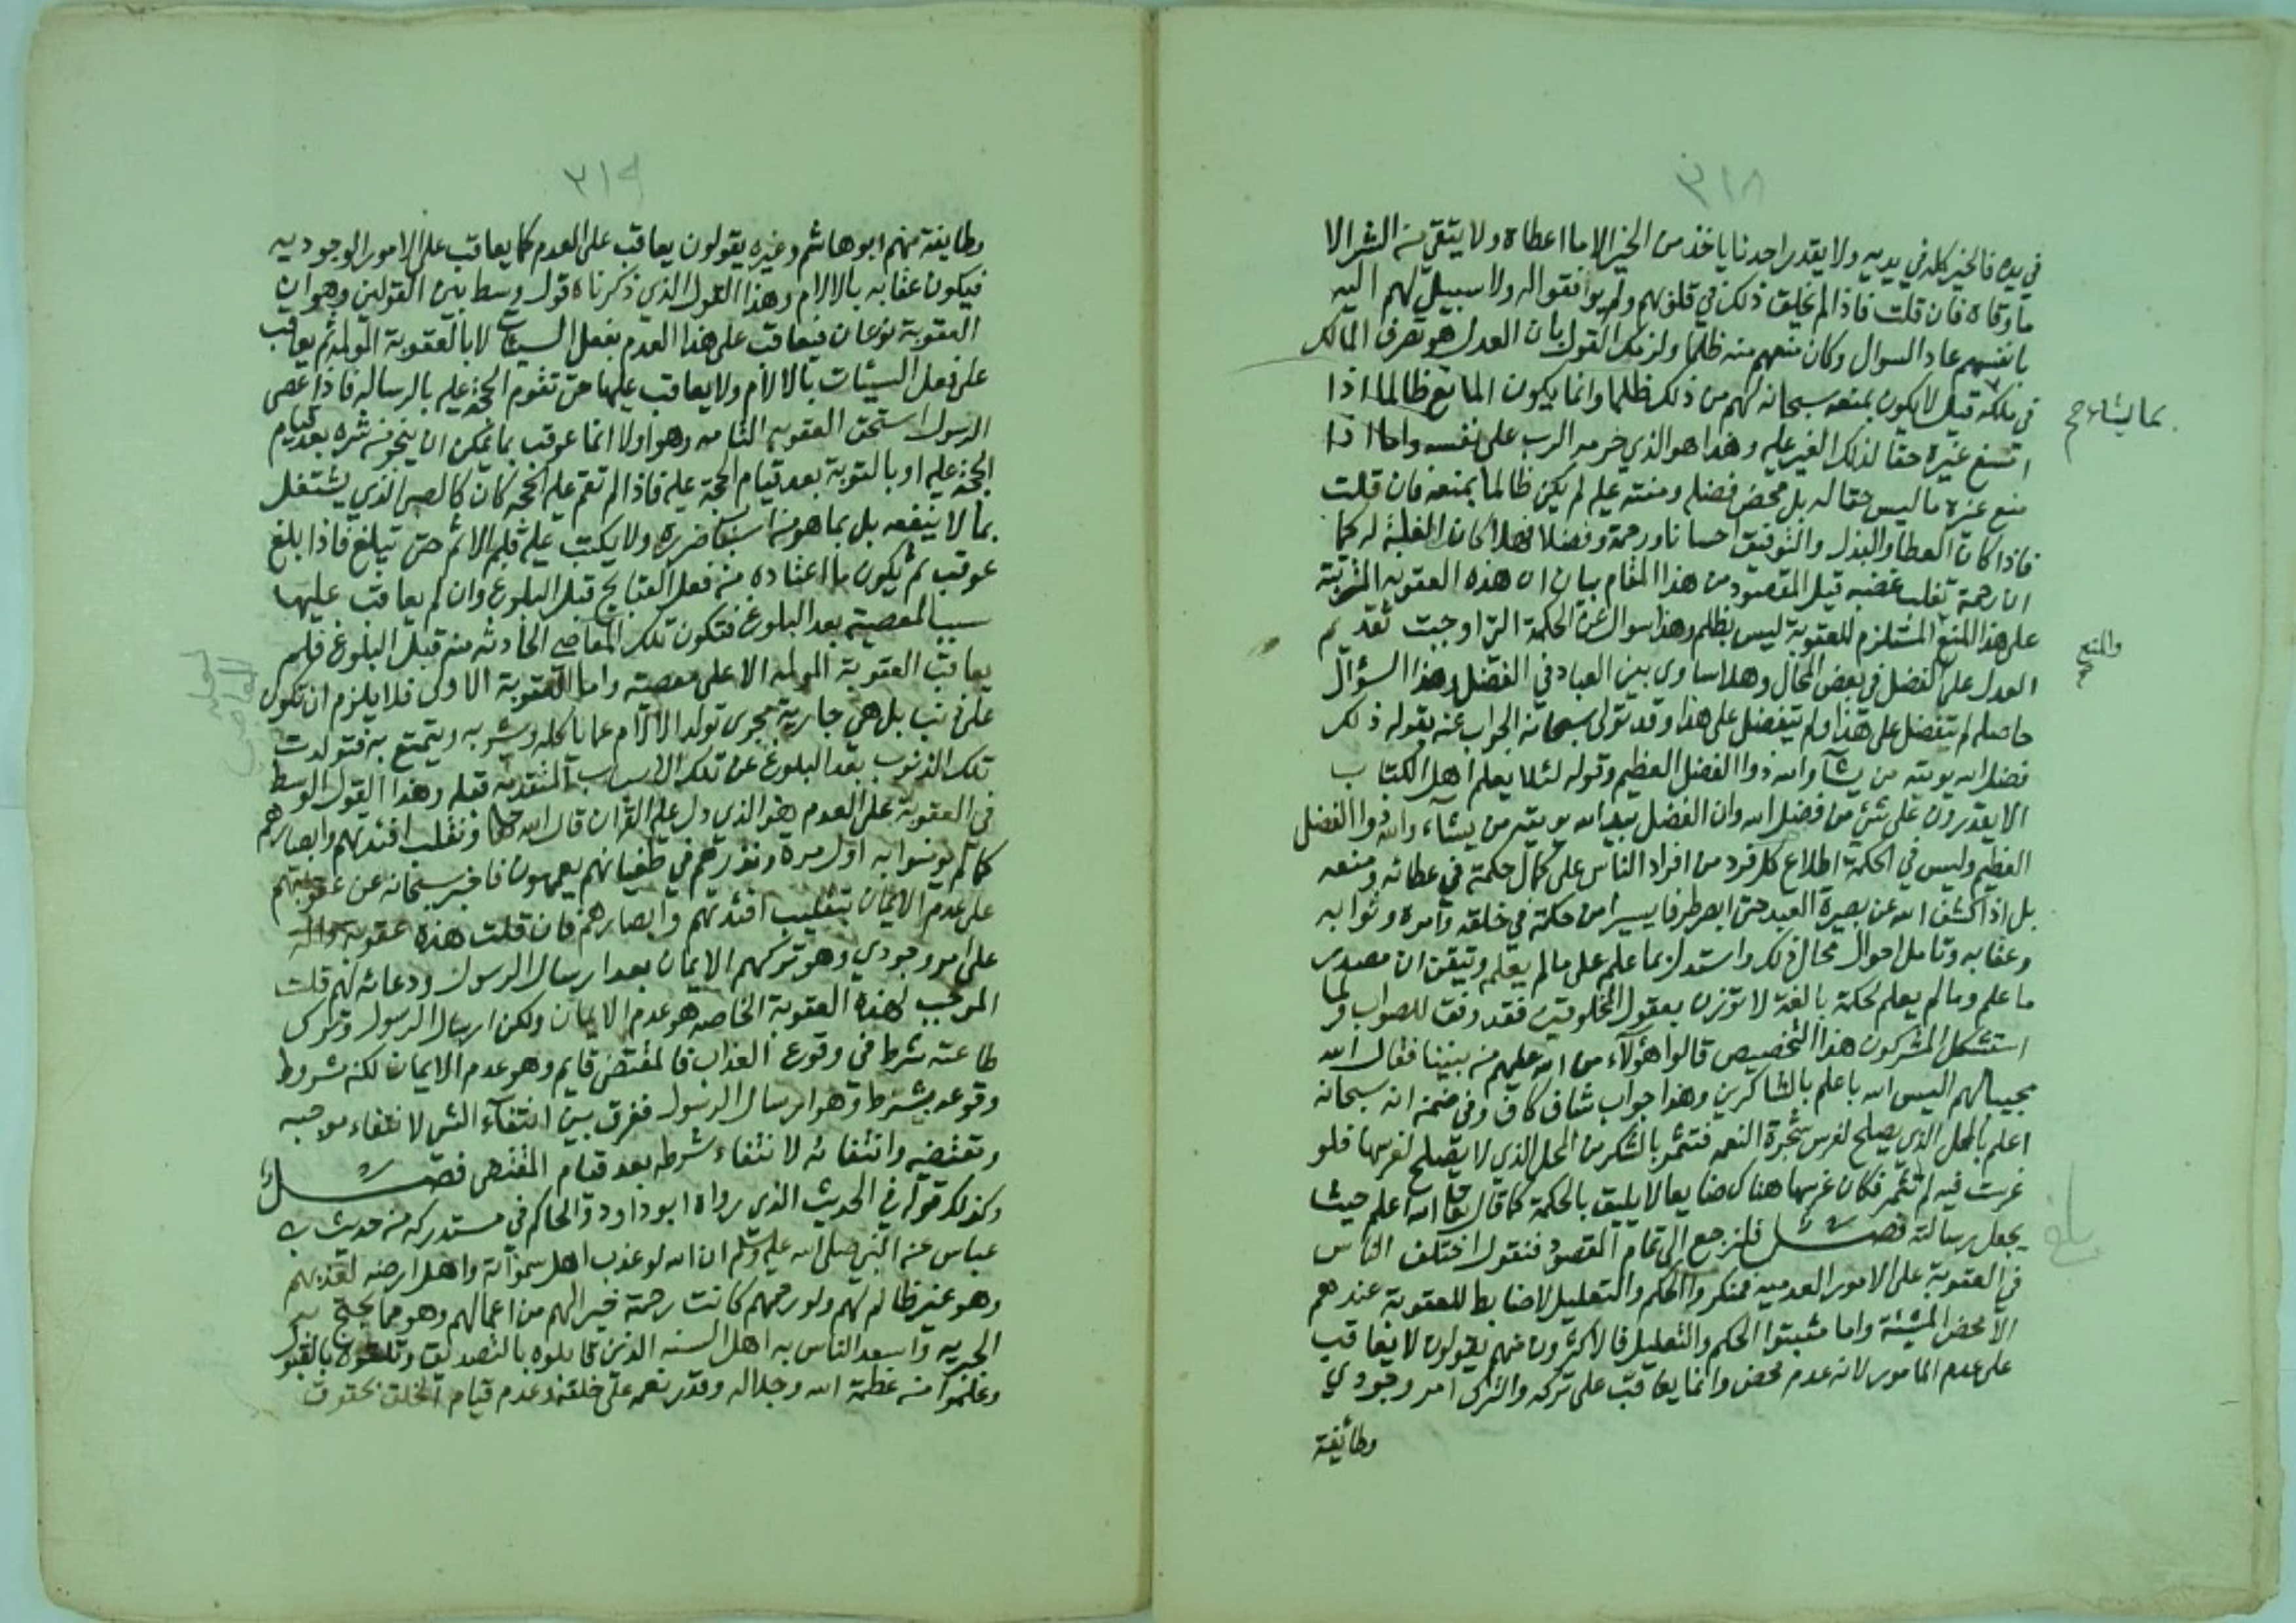 ٣١٨
في يده فالخير كله في يديه ولا يقدر احدنا ياخذ من الخير الا ما اعطاه ولا يتقي من الشر الا
ما وقاه فان قلت فاذا لم يخلق ذلك في قلوبهم ولم يوافقوا له ولا سبيل لهم اليه
بانفسهم عاد السوال وكان منعهم منه ظلما ولزمك القول بان العدل هو تصرف المالك
في ملكه قيل لا يكون بمنعه سبحانه لهم من ذلك ظلما وانما يكون المانع ظالما اذا
بما يشاء صح
منع غيره حقا لذلك الغير عليه وهذا هو الذي حرمه الرب على نفسه واما اذا
منع غيره ما ليس حقا له بل محض فضله ومنته عليه لم يكن ظالما بمنعه فان قلت
فاذا كان العطا والبذل والتوفيق احسانا ورحمة وفضلا فهلا كان الغلبة له كما
ان رحمته تغلب غضبه قيل المقصود من هذا المقام بيان ان هذه العقوبة المترتبة
على هذا المنع المستلزم للعقوبة ليس بظلم وهذا سوال عن الحكمة التي اوجبت تقديم
والمنع صح
العدل على الفضل في بعض المحال وهلا ساوى بين العباد في الفضل وهذا السؤال
حاصله لم تفضل على هذا ولم يتفضل على هذا وقد تولى سبحانه الجواب عنه بقوله ذلك
فضل الله يويته من يشآ والله ذوا الفضل العظيم وقوله لئلا يعلم اهل الكتاب
الا يقدرون على شئ من فضل الله وان الفضل بيد الله يويته من يشآء والله ذوا الفضل
العظيم وليس في الحكمة اطلاع كل فرد من افراد الناس على كمال حكمته في عطائه ومنعه
بل اذا كشف الله عن بصيرة العبد حتى ابصر طرفا يسيرا من حكمته في خلقه وامره وثوابه
وعقابه وتامل احوال محال ذلك واستدل بما علم على ما لم يعلم وتيقن ان مصدر
ما علم وما لم يعلم لحكمة بالغة لا توزن بعقول المخلوقين فقد وفق للصواب ولما
استشكل المشركون هذا التخصيص قالوا هؤلآء من الله عليهم من بيننا فقال الله
مجيبا لهم اليس الله باعلم بالشاكرين وهذا جواب شاف كاف وفي ضمنه انه سبحانه
اعلم بالمحل الذي يصلح لغرس شجرة النعمه فتثمر بالشكر من المحل الذي لا يصلح لغرسها فلو
غرست فيه لم تثمر فكان غرسها هناك ضايعا لا يليق بالحكمة كما قال تعالى الله اعلم حيث
يجعل رسالته فصل فلنرجع الى تمام المقصود فنقول اختلف الناس
بلغ
في العقوبة على الامور العدمية فمنكروا الحكم والتعليل لا ضابط للعقوبة عندهم
الا محض المشيئة واما مثبتوا الحكم والتعليل فالاكثرون منهم يقولون لا يعاقب
على عدم المامور لانه عدم محض وانما يعاقب على تركه والترك امر وجودي
وطائفة
٣١٩
وطايفة منهم ابو هاشم وغيره يقولون يعاقب على العدم كما يعاقب على الامور الوجوديه
فيكون عقابه بالالام وهذا القول الذي ذكرناه قول وسط بين القولين وهو ان
العقوبة نوعان فيعاقب على هذا العدم بفعل السيئات لا بالعقوبة المولمة ثم يعاقب
على فعل السيئات بالالام ولا يعاقب عليها حتى تقوم الحجة عليه بالرساله فاذا عصى
الرسول استحق العقوبه التامه وهو اولا انما عوقب بما يمكن ان ينجو من شره بعد قيام
الحجة عليه او بالتوبة بعد قيام الحجة عليه فاذا لم تقم عليه الحجة كان كالصبي الذي يشتغل
بما لا ينفعه بل بما هو من اسباب ضرره ولا يكتب عليه قلم الاثم حتى يبلغ فاذا بلغ
عوقب ثم يكون ما اعتاده من فعل القبايح قبل البلوغ وان لم يعاقب عليها
سببا لمعصيته بعد البلوغ فتكون تلك المعاصي الحادثه منه قبل البلوغ فلم
يعاقب العقوبة المولمه الا على معصيته واما العقوبة الاولى فلا يلزم ان تكون
على ذنب بل هي جارية مجرى تولد الالام عما ياكله ويشربه ويتمتع به فتولدت
تلك الذنوب بعد البلوغ عن تلك الاسباب المتقدمه قبله وهذا القول الوسط
في العقوبة على العدم هو الذي دل عليه القران قال الله تعالى ونقلب افئدتهم وابصارهم
كما لم يومنوا به اول مرة ونذرهم في طغيانهم يعمهون فاخبر سبحانه عن عقوبتهم
على عدم الايمان بتقليب افئدتهم وابصارهم فان قلت هذه عقوبة
على امر وجودي وهو تركهم الايمان بعد ارسال الرسول ودعائه لهم قلت
الموجب لهذه العقوبة الخاصه هو عدم الايمان ولكن ارسال الرسول وترك
طاعته شرط في وقوع العذاب فالمقتضى قايم وهو عدم الايمان لكنه مشروط
وقوعه بشرط وهو ارسال الرسول ففرق بين انتفآء الشي لانتفاء موجبه
ومقتضيه وانتفائه لانتفاء شرطه بعد قيام المقتضي فصل
وكذلك قوله في الحديث الذي رواه ابو داود والحاكم في مستدركه من حديث بن
عباس عن النبي صلى الله عليه وسلم ان الله لو عذب اهل سمواته واهل ارضه لعذبهم
وهو غير ظالم لهم ولو رحمهم كانت رحمته خيرا لهم من اعمالهم وهو مما يحتج به
الجبريه واسعد الناس به اهل السنه الذين قابلوه بالتصديق وتلقوه بالقبول
وعلموا منه عظمة الله وجلاله وقدر نعمه على خلقه وعدم قيام الخلق بحقوق